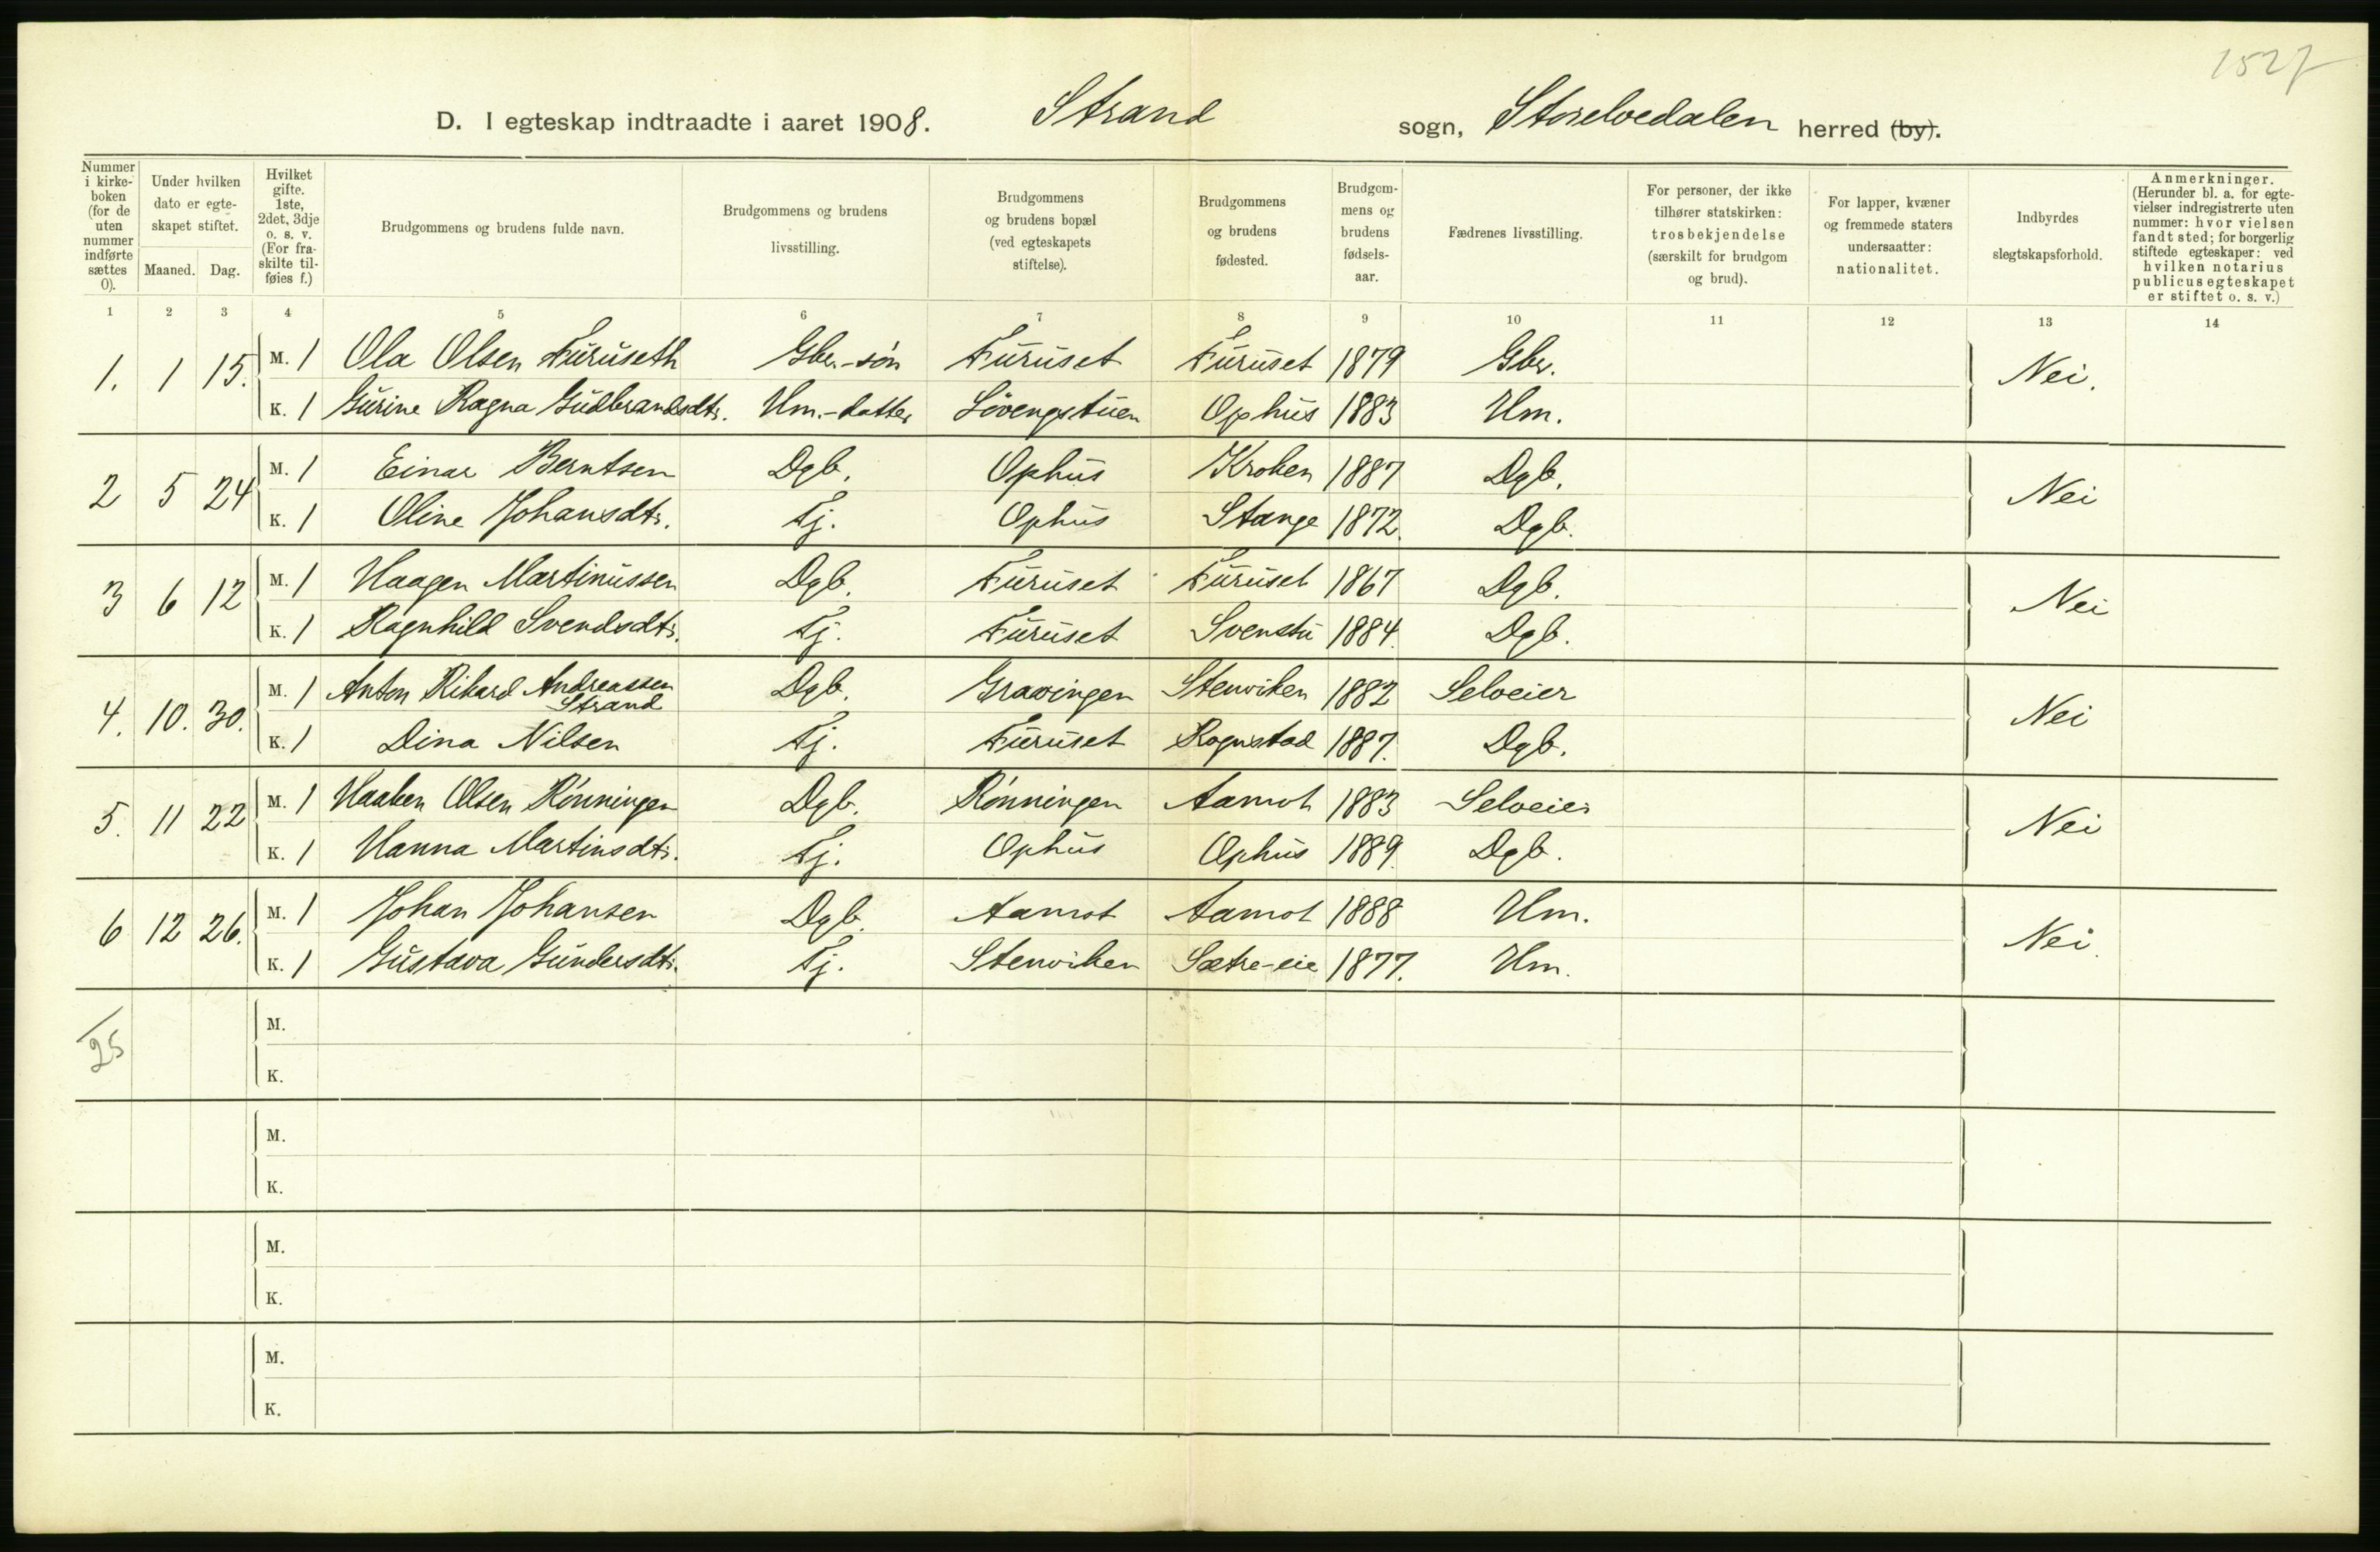 1527
D. I egteskap indtraadte i aaret 1908. Strand sogn, Storelvedalen herred (by).
Nummer i kirkeboken (for de uten nummer indførte sættes 0).
Under hvilken dato er egteskapet stiftet.
Maaned. Dag.
Hvilket gifte. 1ste, 2det, 3dje o. s. v. (For fraskilte tilføies f.)
Brudgommens og brudens fulde navn.
Brudgommens og brudens livsstilling.
Brudgommens og brudens bopæl (ved egteskapets stiftelse).
Brudgommens og brudens fødested.
Brudgommens og brudens fødselsaar.
Fædrenes livsstilling.
For personer, der ikke tilhører statskirken: trosbekjendelse (særskilt for brudgom og brud).
For lapper, kvæner og fremmede staters undersaatter: nationalitet.
Indbyrdes slegtskapsforhold.
Anmerkninger. (Herunder bl. a. for egtevielser indregistrerte uten nummer: hvor vielsen fandt sted; for borgerlig stiftede egteskaper: ved hvilken notarius publicus egteskapet er stiftet o. s. v.)
1 2 3 4 5 6 7 8 9 10 11 12 13 14
1. 1 15. M. 1 Ola Olsen Furuseth Gbr.-søn Furuset Furuset 1879 Gbr. Nei.
K. 1 Gurine Ragna Gudbrandsdtr. Hm.-datter Løvengstuen Ophus 1883 Hm.
2 5 24 M. 1 Einar Berntsen Dgb. Ophus Kroken 1887 Dgb. Nei
K. 1 Oline Johansdtr. Tj. Ophus Stange 1872. Dgb.
3 6 12 M. 1 Haagen Martinussen Dgb. Furuset Furuset 1867 Dgb. Nei
K. 1 Ragnhild Svendsdtr. Tj. Furuset Svenstu 1884. Dgb.
4. 10. 30. M. 1 Anton Rikard Andreassen Strand Dgb. Gravingen Stenviken 1882 Selveier Nei
K. 1 Dina Nilsen Tj. Furuset Rognstad 1887. Dgb.
5. 11 22 M. 1 Haaken Olsen Rønningen Dgb. Rønningen Aamot 1883 Selveier Nei
K. 1 Hanna Martinsdtr. Tj. Ophus Ophus 1889. Dgb.
6 12 26. M. 1 Johan Johansen Dgb. Aamot Aamot 1888 Hm. Nei.
K. 1 Gustava Gundersdtr. Tj. Stenviken Sætre-eie 1877. Hm.
25
M.
K.
M.
K.
M.
K.
M.
K.